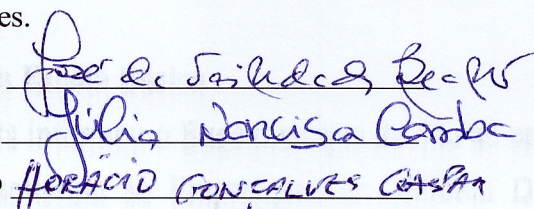 es.
José da Trindade
Júlia Narcisa
HORÁCIO GONÇALVES GASPAR